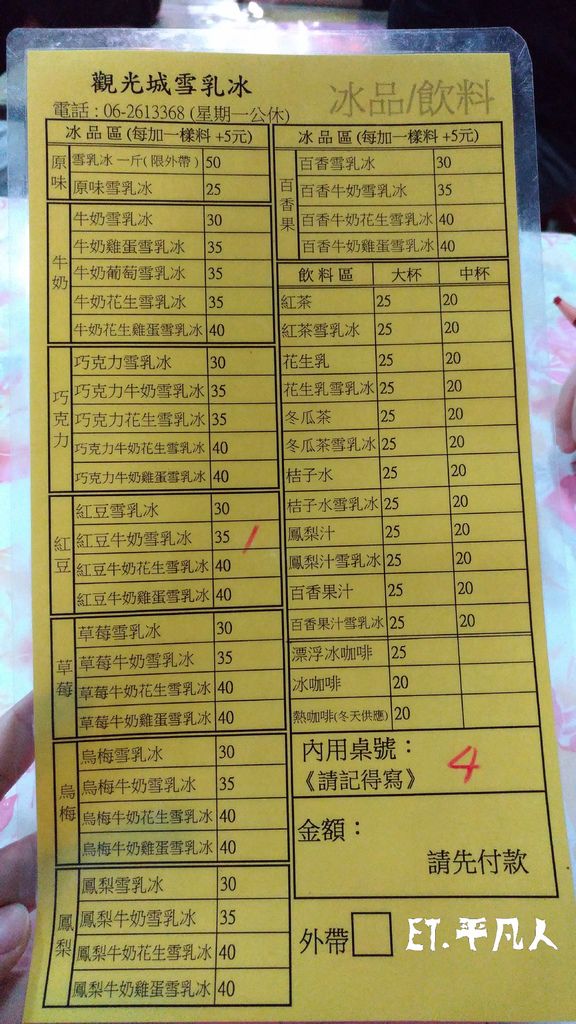 觀光城雪乳冰
冰品/飲料
電話 : 06-2613368 (星期一公休)
冰品區 (每加一樣料 +5元)
原味
雪乳冰 一斤( 限外帶 ) 50
原味雪乳冰 25
牛奶
牛奶雪乳冰 30
牛奶雞蛋雪乳冰 35
牛奶葡萄雪乳冰 35
牛奶花生雪乳冰 35
牛奶花生雞蛋雪乳冰 40
巧克力
巧克力雪乳冰 30
巧克力牛奶雪乳冰 35
巧克力花生雪乳冰 35
巧克力牛奶花生雪乳冰 40
巧克力牛奶雞蛋雪乳冰 40
紅豆
紅豆雪乳冰 30
紅豆牛奶雪乳冰 35 1
紅豆牛奶花生雪乳冰 40
紅豆牛奶雞蛋雪乳冰 40
草莓
草莓雪乳冰 30
草莓牛奶雪乳冰 35
草莓牛奶花生雪乳冰 40
草莓牛奶雞蛋雪乳冰 40
烏梅
烏梅雪乳冰 30
烏梅牛奶雪乳冰 35
烏梅牛奶花生雪乳冰 40
烏梅牛奶雞蛋雪乳冰 40
鳳梨
鳳梨雪乳冰 30
鳳梨牛奶雪乳冰 35
鳳梨牛奶花生雪乳冰 40
鳳梨牛奶雞蛋雪乳冰 40
冰品區 (每加一樣料 +5元)
百香果
百香雪乳冰 30
百香牛奶雪乳冰 35
百香牛奶花生雪乳冰 40
百香牛奶雞蛋雪乳冰 40
飲料區 大杯 中杯
紅茶 25 20
紅茶雪乳冰 25 20
花生乳 25 20
花生乳雪乳冰 25 20
冬瓜茶 25 20
冬瓜茶雪乳冰 25 20
桔子水 25 20
桔子水雪乳冰 25 20
鳳梨汁 25 20
鳳梨汁雪乳冰 25 20
百香果汁 25 20
百香果汁雪乳冰 25 20
漂浮冰咖啡 25
冰咖啡 20
熱咖啡(冬天供應) 20
內用桌號： 4
《請記得寫》
金額：
請先付款
外帶
ET.平凡人